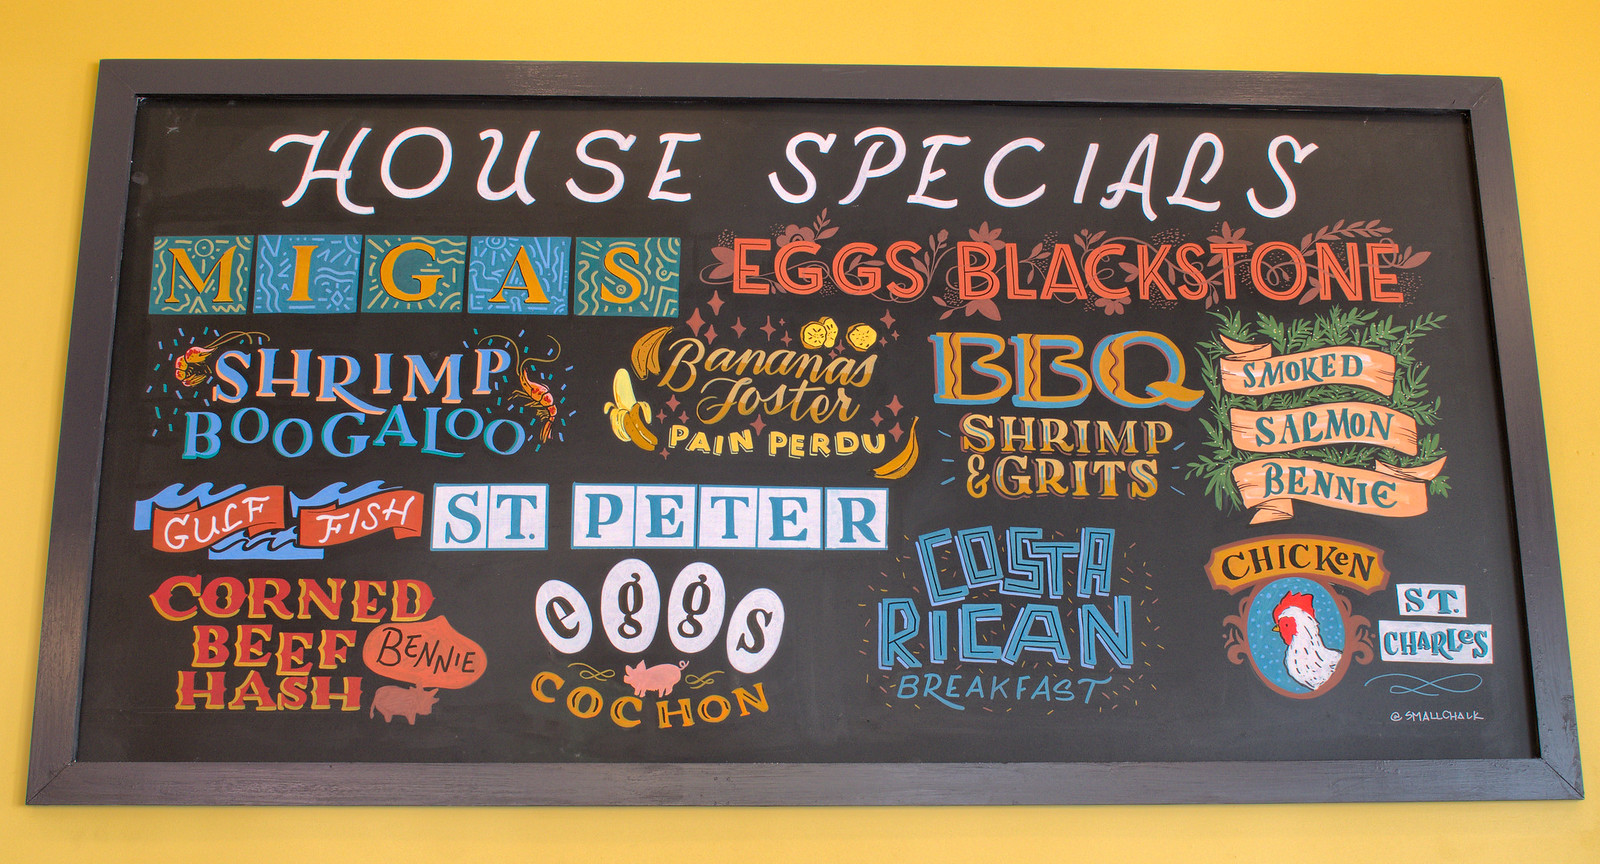 HOUSE SPECIALS
MIGAS
EGGS BLACKSTONE
SHRIMP
BOOGALOO
Bananas
Foster
PAIN PERDU
BBQ
SHRIMP
& GRITS
SMOKED
SALMON
BENNIE
GULF FISH ST. PETER
CORNED
BEEF
HASH
BENNIE
eggs
COCHON
COSTA
RICAN
BREAKFAST
CHICKeN
ST.
CHARLeS
@SMALLCHALK